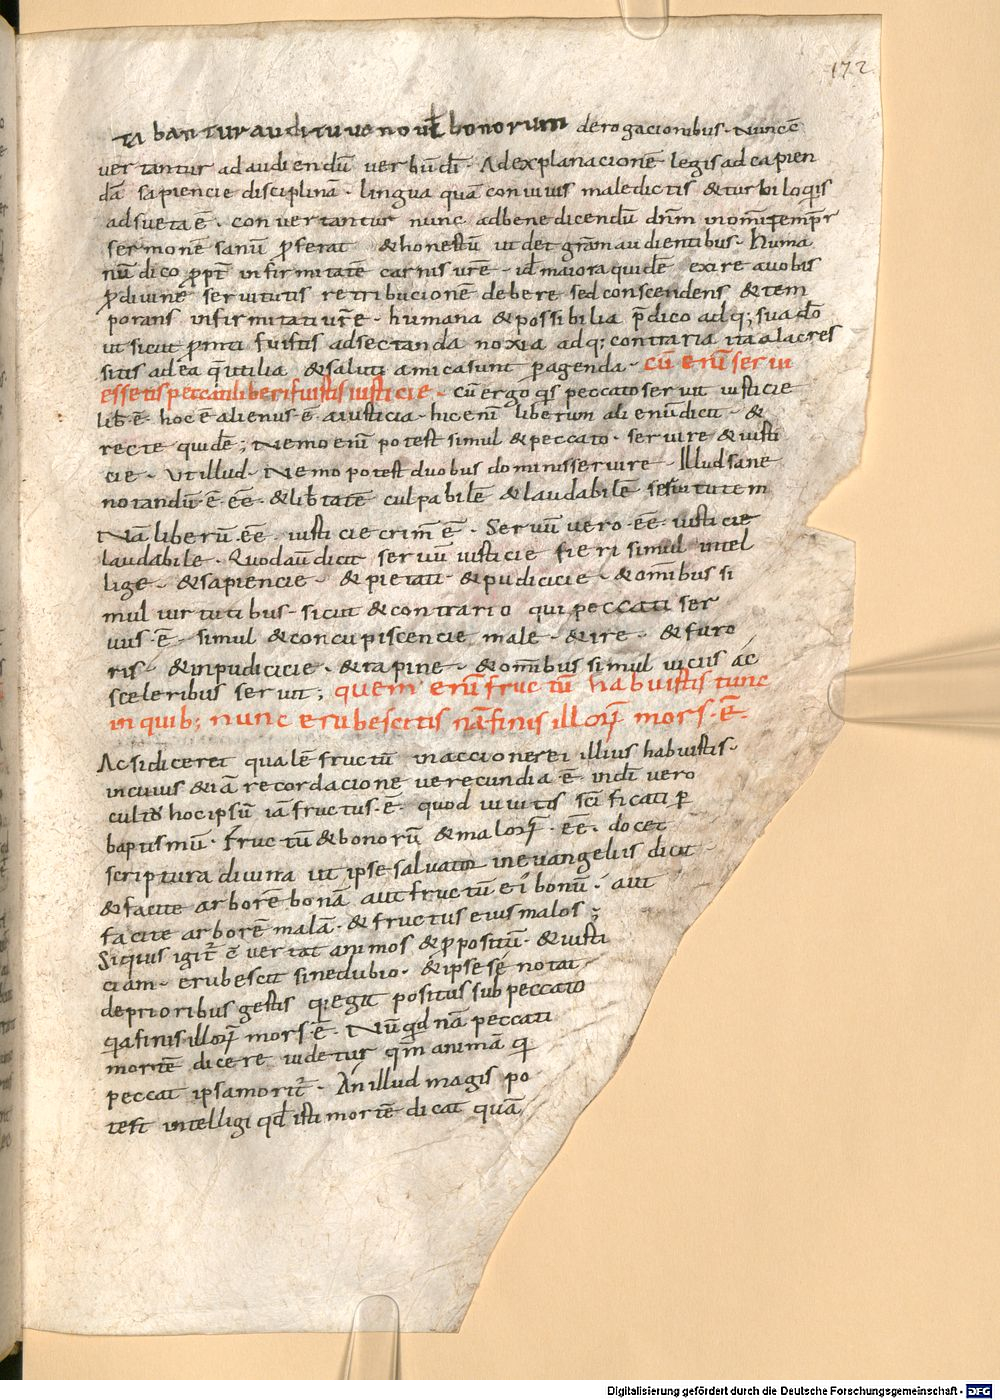 172
ta bantur auditu uano uł bonorum derogacionibus · Nunc c̄
uertantur ad audiendū uerbū dī · Ad explanacionē legis ad capien
dā sapiencie disciplinā · lingua quā conuiuiis maledictis & turbiloq̄is
adsueta ē · conuertantur nunc ad benedicendū dn̄m in om̄i temp̄r
sermonē sanū ꝓferat & honestū ut det grām audientibus · Huma
nū dico ꝓpt̄ infirmitatē carnis urē · id maiora quidē exire a uobis
ꝓ diuinē seruitutis retribucionē debere sed conscendens & tem
porans infirmitati urē · humana & possibilia p̄dico adq; suadō
ut sicut ꝓmti fuistis ad sectanda noxia adq; contraria ita alacres
sitis ad ea q̄ utilia & saluti amica sunt pagenda · cū enī serui
essetis peccati liberi fuistis iusticie · cū ergo q̄s peccato seruit iusticie
lib̄ ē · hoc ē alienus ē a iusticia · hic enī liberum alienū dicit · &
recte quidē ; Nemo enī potest simul & peccato · seruire & iusti
cie · Ut illud · Nemo potest duobus dominis seruire · Illud sane
notandū ē ēē · & lib̄tatē culpabilē & laudabilē seruitutem
Nā liberū ēē · iusticie crim̄ ē · Seruū uero ēē · iusticie
laudabile · Quod aū dicit seruū iusticie fieri simul intel
lige · & sapiencie · & pietati · & pudicicie · & om̄ibus si
mul uirtutibus · sicut & contrario qui peccati ser
uus · ē · simul & concupiscencie male · & ire · & furo
ris · & inpudicicie · & rapine · & om̄ibus simul uiciis ac
sceleribus seruit ; quem enī fructū habuistis tunc
in quib; nunc erubescitis nā finis illoꝝ mors · ē ·
Ac si diceret qualē fructū in accione rei illius habuistis ·
in cuius & iā recordacione uerecundia ē · in dī uero
cultu hoc ipsū iā fructus · ē · quod uiuitis sc̄ificati ꝑ
baptismū · Fructū & bonorū & maloꝝ · ēē · docet
scriptura diuina ut ipse saluator in euangeliis dicit ·
& facite arborē bonā aut fructū ei bonū · aut
facite arborē malā · & fructus eius malos ;
Siquis igit̄ c̄uertat animos & ꝓpositū · & iusti
ciam · erubescit sine dubio · & ipse sē notat
de prioribus gestis q̄ egit positus sub peccato
q̄a finis illoꝝ mors · ē · Nū q̄d nā peccati
mortē dicere uidetur q̄m animā q̄
peccat ipsa morit̄ · An illud magis po
test intelligi qd̄ isti mortē dicat quā
Digitalisierung gefördert durch die Deutsche Forschungsgemeinschaft - DFG